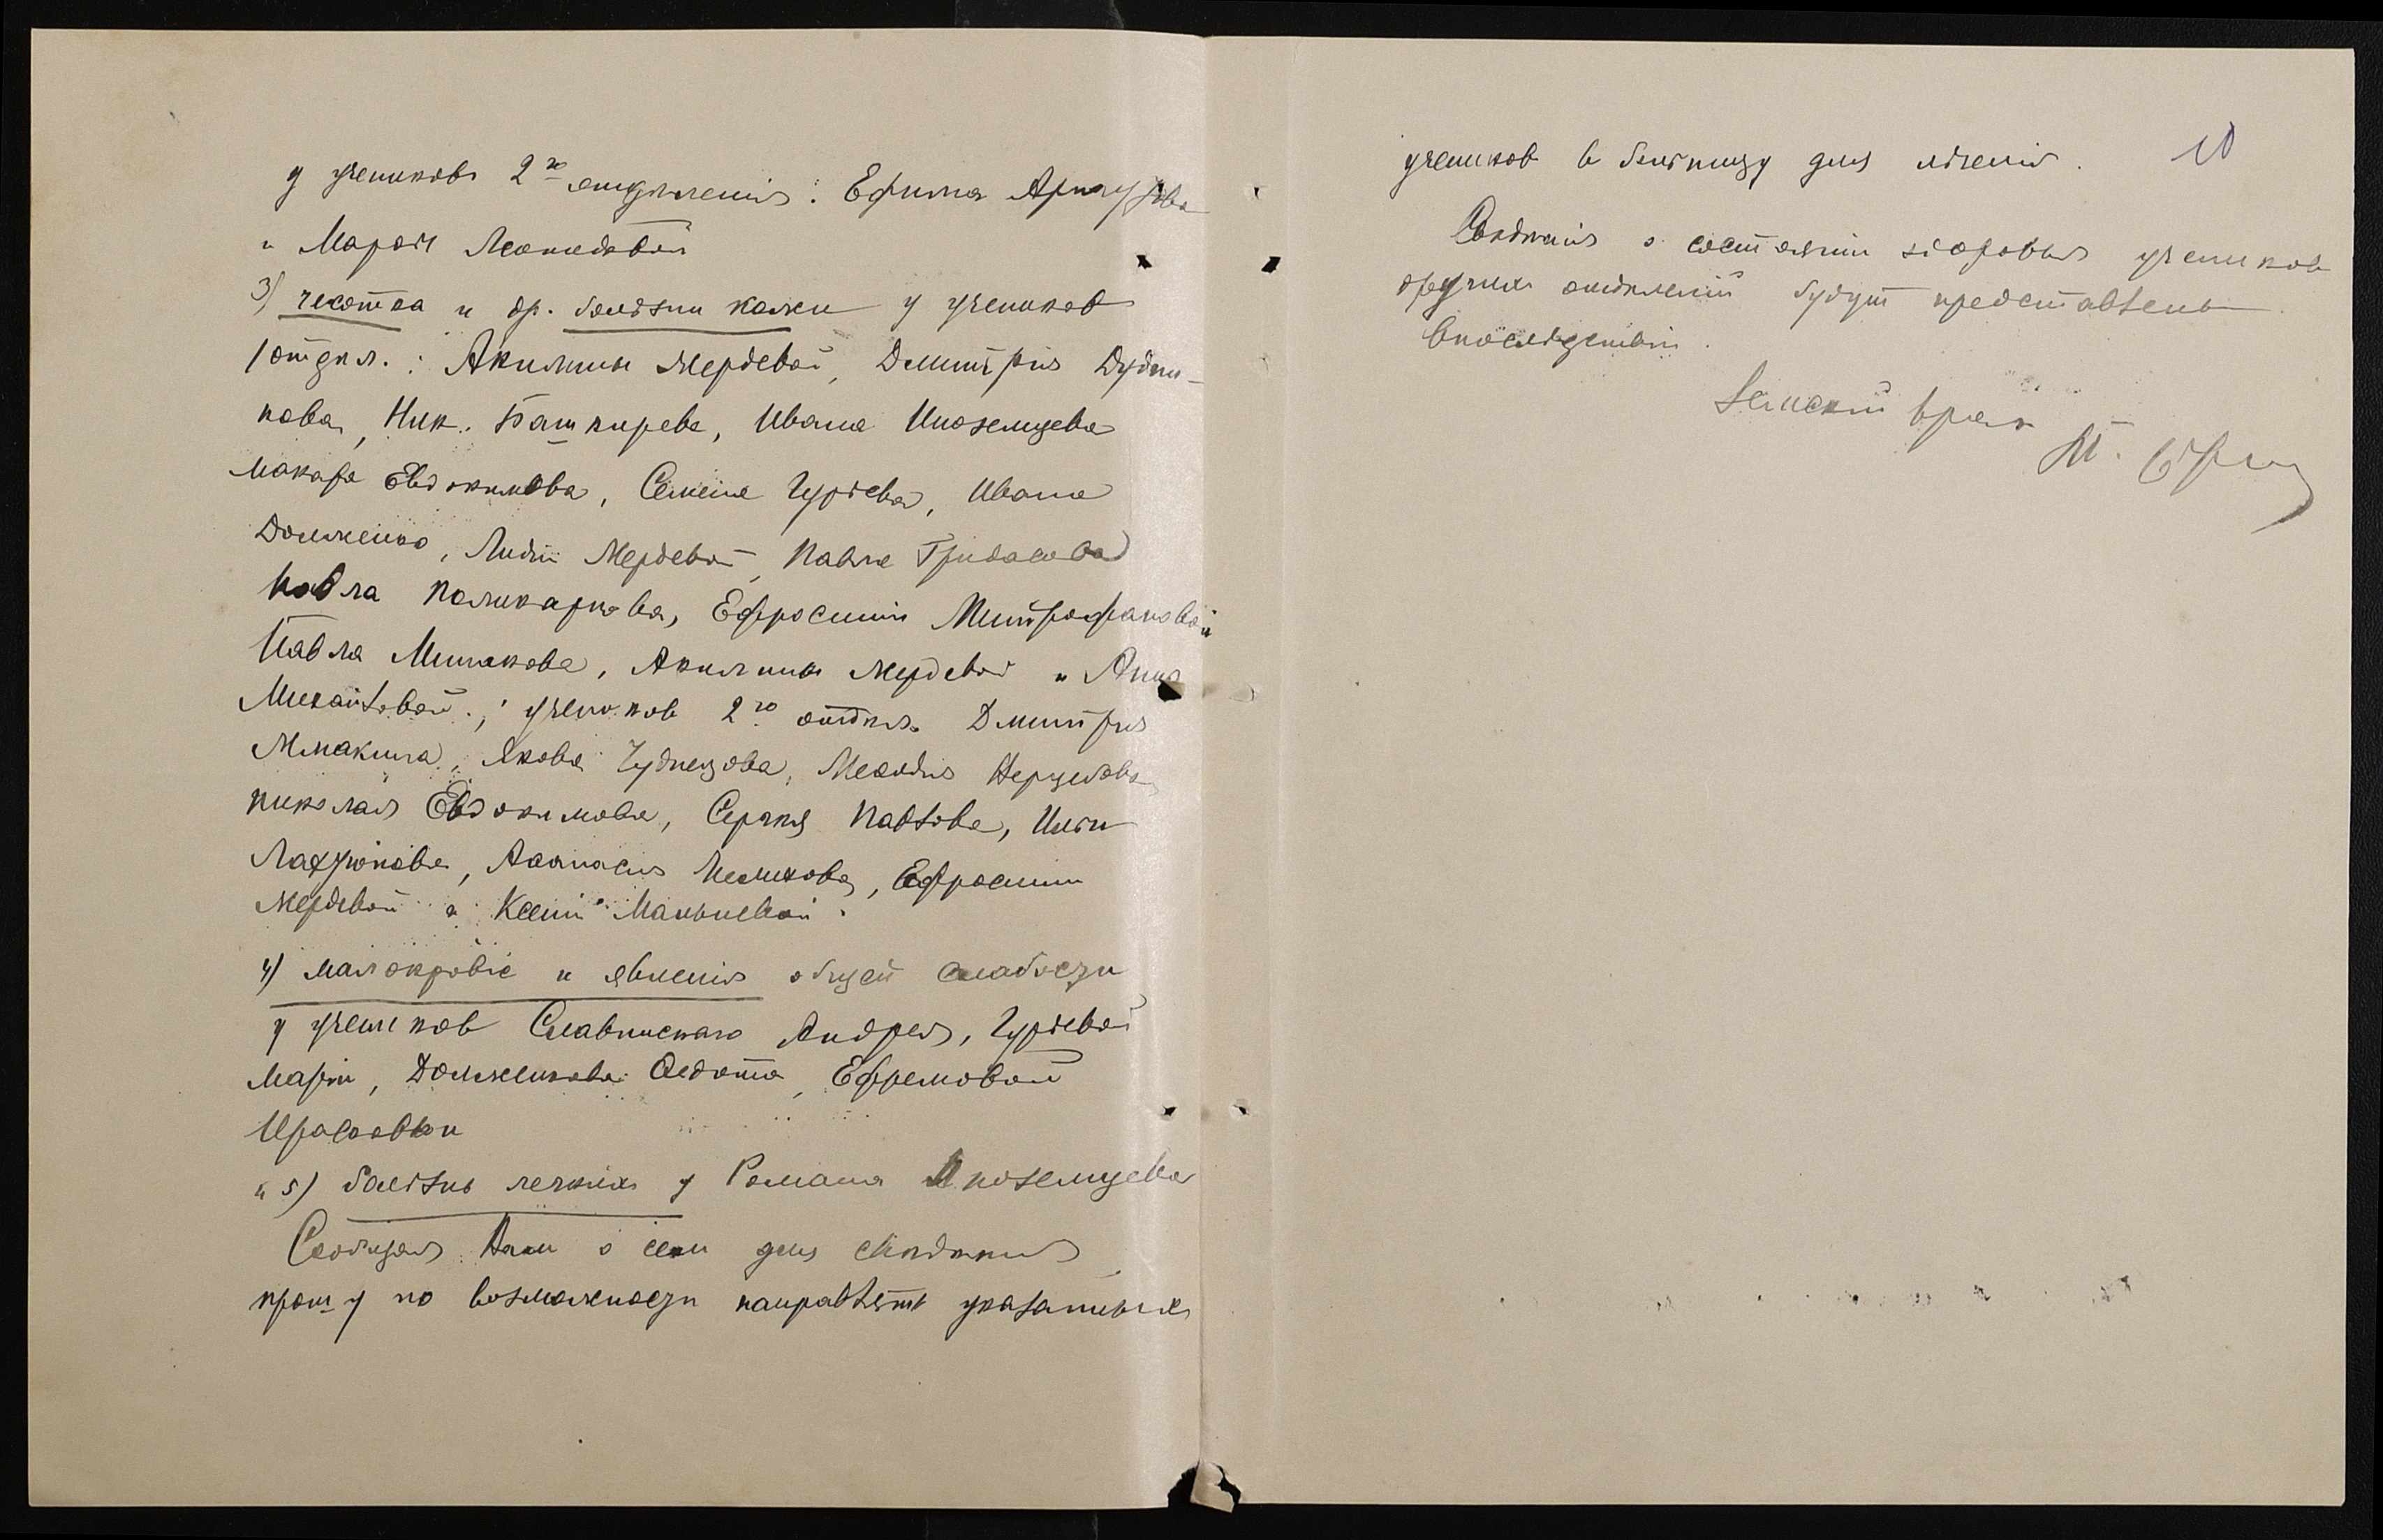 у учениковъ 2го отдѣленія: Ефима
и Маріи Леонидовой
3) чесотка и др. болѣзни кожи у учеников
1 отдѣл.: Акилины Жердевой, Дмитрія Дудни-
кова, Ник. Башкирева, Ивана Иноземцева
Макара Евдокимова, Семена Гурѣева, Ивана
Долженко, Лидіи Жердевой, Павла Гридасова
Павла Поликарпова, Ефросиніи Митрофановой
Павла Минакова, Акилины Жердевой и Анны
Михайловой; учеников 2го отдѣл. Дмитрія
Якова Меѳодія
Николая Евдокимова, Сергѣя Павлова, Ильи
Аѳанасія Ефросиніи
Жердевой и Ксеніи
4) малокровіе и явленія общей слабости
у учеников Славинскаго Андрея, Гурѣевой
Маріи, Долженкова Ѳедота, Ефремовой
и 5) болѣзнь легких у Романа Иноземцева
Сообщая Вам о сем для свѣдѣнія
прошу по возможности направлять указанных
учеников в больницу для лѣченія.
10
Свѣдѣнія о состояніи здоровья учеников
других отдѣленій будут представлены
впослѣдствіи.
Земскій врач